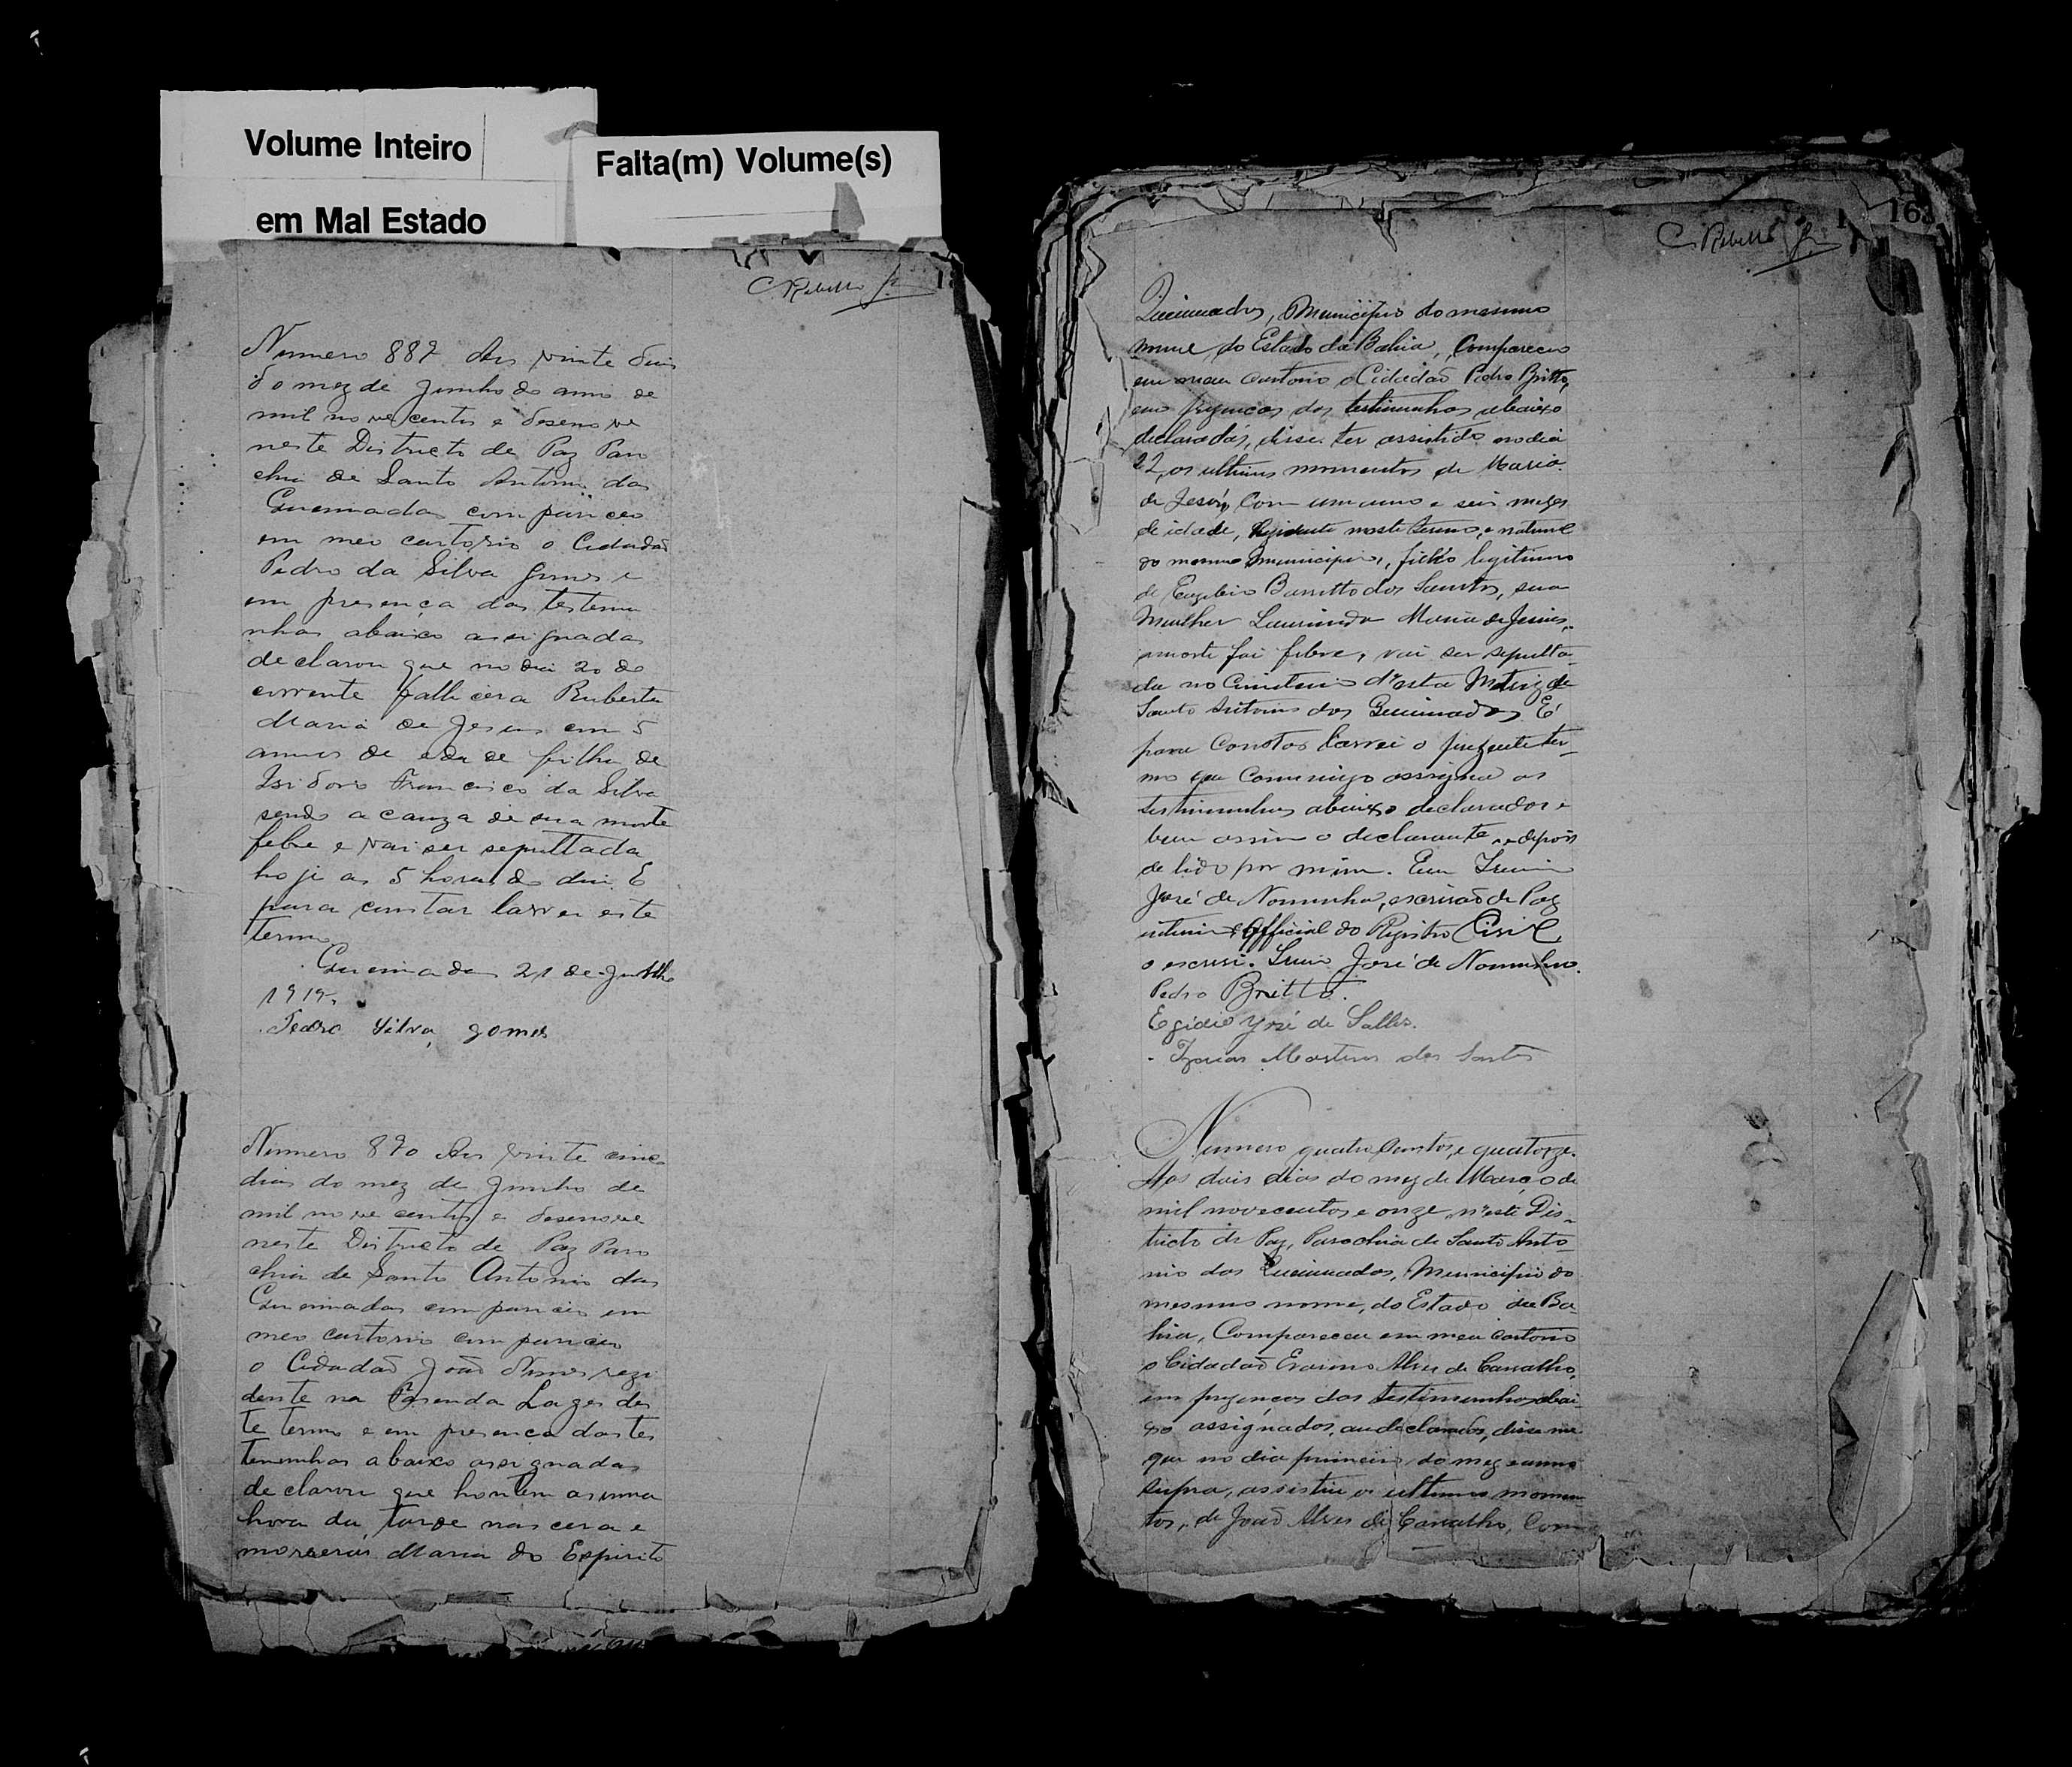 Volume Inteiro
em Mal Estado
Falta(m) Volume(s)
C. Rebello Jr
Numero 889 Aos vinte dois
do mez de Junho do anno de
mil nove centos e desenove
neste Districto de Paz Paro
chia de Santo Antonio das
Queimadas compareceo
em meo cartorio o Cidadão
Pedro da Silva Gomes e
em presença das testemu
nhas abaixo assignadas
declarou que no dia 20 do
corrente fallicera Ruberta
Maria de Jesus com 5
annos de edade filha de
Isidoro Francisco da Silva
sendo a cauza de sua morte
febre e vai ser sepultada
hoji as 5 horas do dia. E
para constar lavrei este
termo
Queimadas 21 de Julho
1919.
Pedro Silva gomes
Numero 890 Aos vinte cinco
dias do mez de Junho de
mil nove centos e desenove
neste Districto de Paz Paro
chia de Santo Antonio das
Queimadas compareceo em
meo cartorio compareceo
o Cidadão João Nunes rezi
dente na Fasenda Lages des
te termo e em presenca das tes
temunhas abaixo assignadas
declarou que hontem as uma
hora da tarde nascera e
morrera Maria do Espirito
163
C. Rebello Jr
Queimadas, Municipio do mesmo
nome, do Estado da Bahia, Compareceu
em meu Cartorio o Cidadão Pedro Britto,
em prezencas das testimunhas abaixo
declaradas, disse ter assistido no dia
22, os ultimos momentos de Maria
de Jesus, Com um anno e seis mezes
de idade, Rezidente neste termo, e natural
do mesmo municipio, filha legitima
de Euzebio Barretto dos Santos, sua
Mulher Laurinda Maria de Jesus,
a morte foi febre, vai ser sepulta-
da no Cimiterio d'esta Matriz de
Santo Antonio das Queimadas E'
para Constar lavrei o prezente ter-
mo que Commigo assigna as
testimunhas abaixo declaradas e
bem assim o declarante, e depois
de lido por mim. Eu
José de Noronha, escrivão de Paz
interino e Official do Registro Civil,
o escrevi. José de Noronha.
Pedro Britto.
Egidio José de Salles.
Izaias Martins dos Santos
Numero quatro Centos, e quatorze.
Aos dois dias do mez de Março de
mil novecentos e onze, n'este Dis-
tricto de Paz, Parochia de Santo Anto-
nio das Queimadas, Municipio do
mesmo nome, do Estado da Ba-
hia, Compareceu em meu Cartorio
o Cidadão Erasmo Alves de Carvalho,
em prezencas das testimunhas abai-
xo assignados, ou declarados, disse me
que no dia primeiro do mez e anno
supra, assistiu os ultimos momen
tos, de João Alves de Carvalho, Com